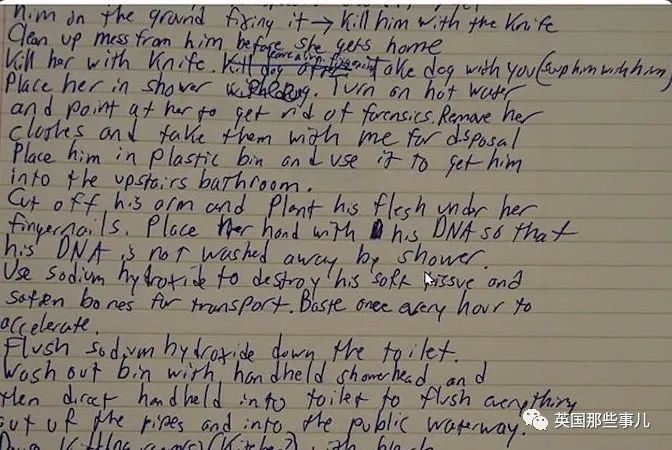 him on the ground fixing it → Kill him with the Knife
Clean up mess from him before she gets home
Kill her with Knife. Take dog with you
Place her in shower Turn on hot water
and point at her to get rid of forensics. Remove her
clothes and take them with me for disposal
Place him in plastic bin and use it to get him
into the upstairs bathroom.
Cut off his arm and Plant his flesh under her
fingernails. Place her hand with his DNA so that
his DNA is not washed away by shower.
Use sodium hydroxide to destroy his soft tissue and
soften bones for transport. Baste once every hour to
accelerate.
Flush sodium hydroxide down the toilet.
Wash out bin with handheld showerhead and
then direct handheld into toilet to flush everything
out of the pipes and into the public waterway.
英国那些事儿